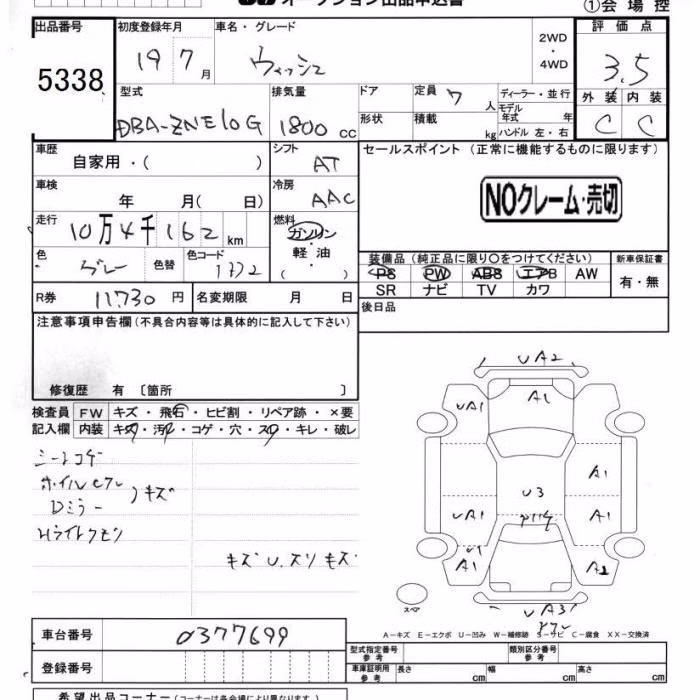 オークション出品申込書
①会場控
出品番号 初度登録年月 車名・グレード 評価点
5338 19 7月 ウィッシュ 2WD・4WD 3.5
外装 内装
C C
型式 排気量 ドア 定員 7人 ディーラー・並行
DBA-ZNE10G 1800cc 形状 積載 kg モデル年式 年
ハンドル 左・右
車歴 自家用・( ) シフト AT セールスポイント (正常に機能するものに限ります)
車検 年 月( 日) 冷房 AAC NOクレーム・売切
走行 10万4千162km 燃料 ガソリン
軽油
( )
色 グレー 色替 色コード
装備品 (純正品に限り○をつけてください) 新車保証書
PS PW ABS エアB AW 有・無
SR ナビ TV カワ
R券 11,730円 名変期限 月 日 後日品
注意事項申告欄(不具合内容等は具体的に記入して下さい)
修復歴 有 〔箇所 〕
検査員 FW キズ・飛石・ヒビ割・リペア跡・×要
記入欄 内装 キズ・汚れ・コゲ・穴・スレ・キレ・破レ
シートコゲ
ホイルセカレ
Dミラー キズ
Hライトクモリ
キズ U. スリキズ
UA2
A1
UA1
A1
U3
UA1 A1
U1
A1 A2
UA3
スペア
A-キズ E-エクボ U-凹み W-補修跡 S-サビ C-腐食 XX-交換済
車台番号 0377699
登録番号
型式指定番号 参考 類別区分番号 参考
車庫証明用 参考 長さ cm 幅 cm 高さ cm
希望出品コーナー (コーナーは各会場により異なります)